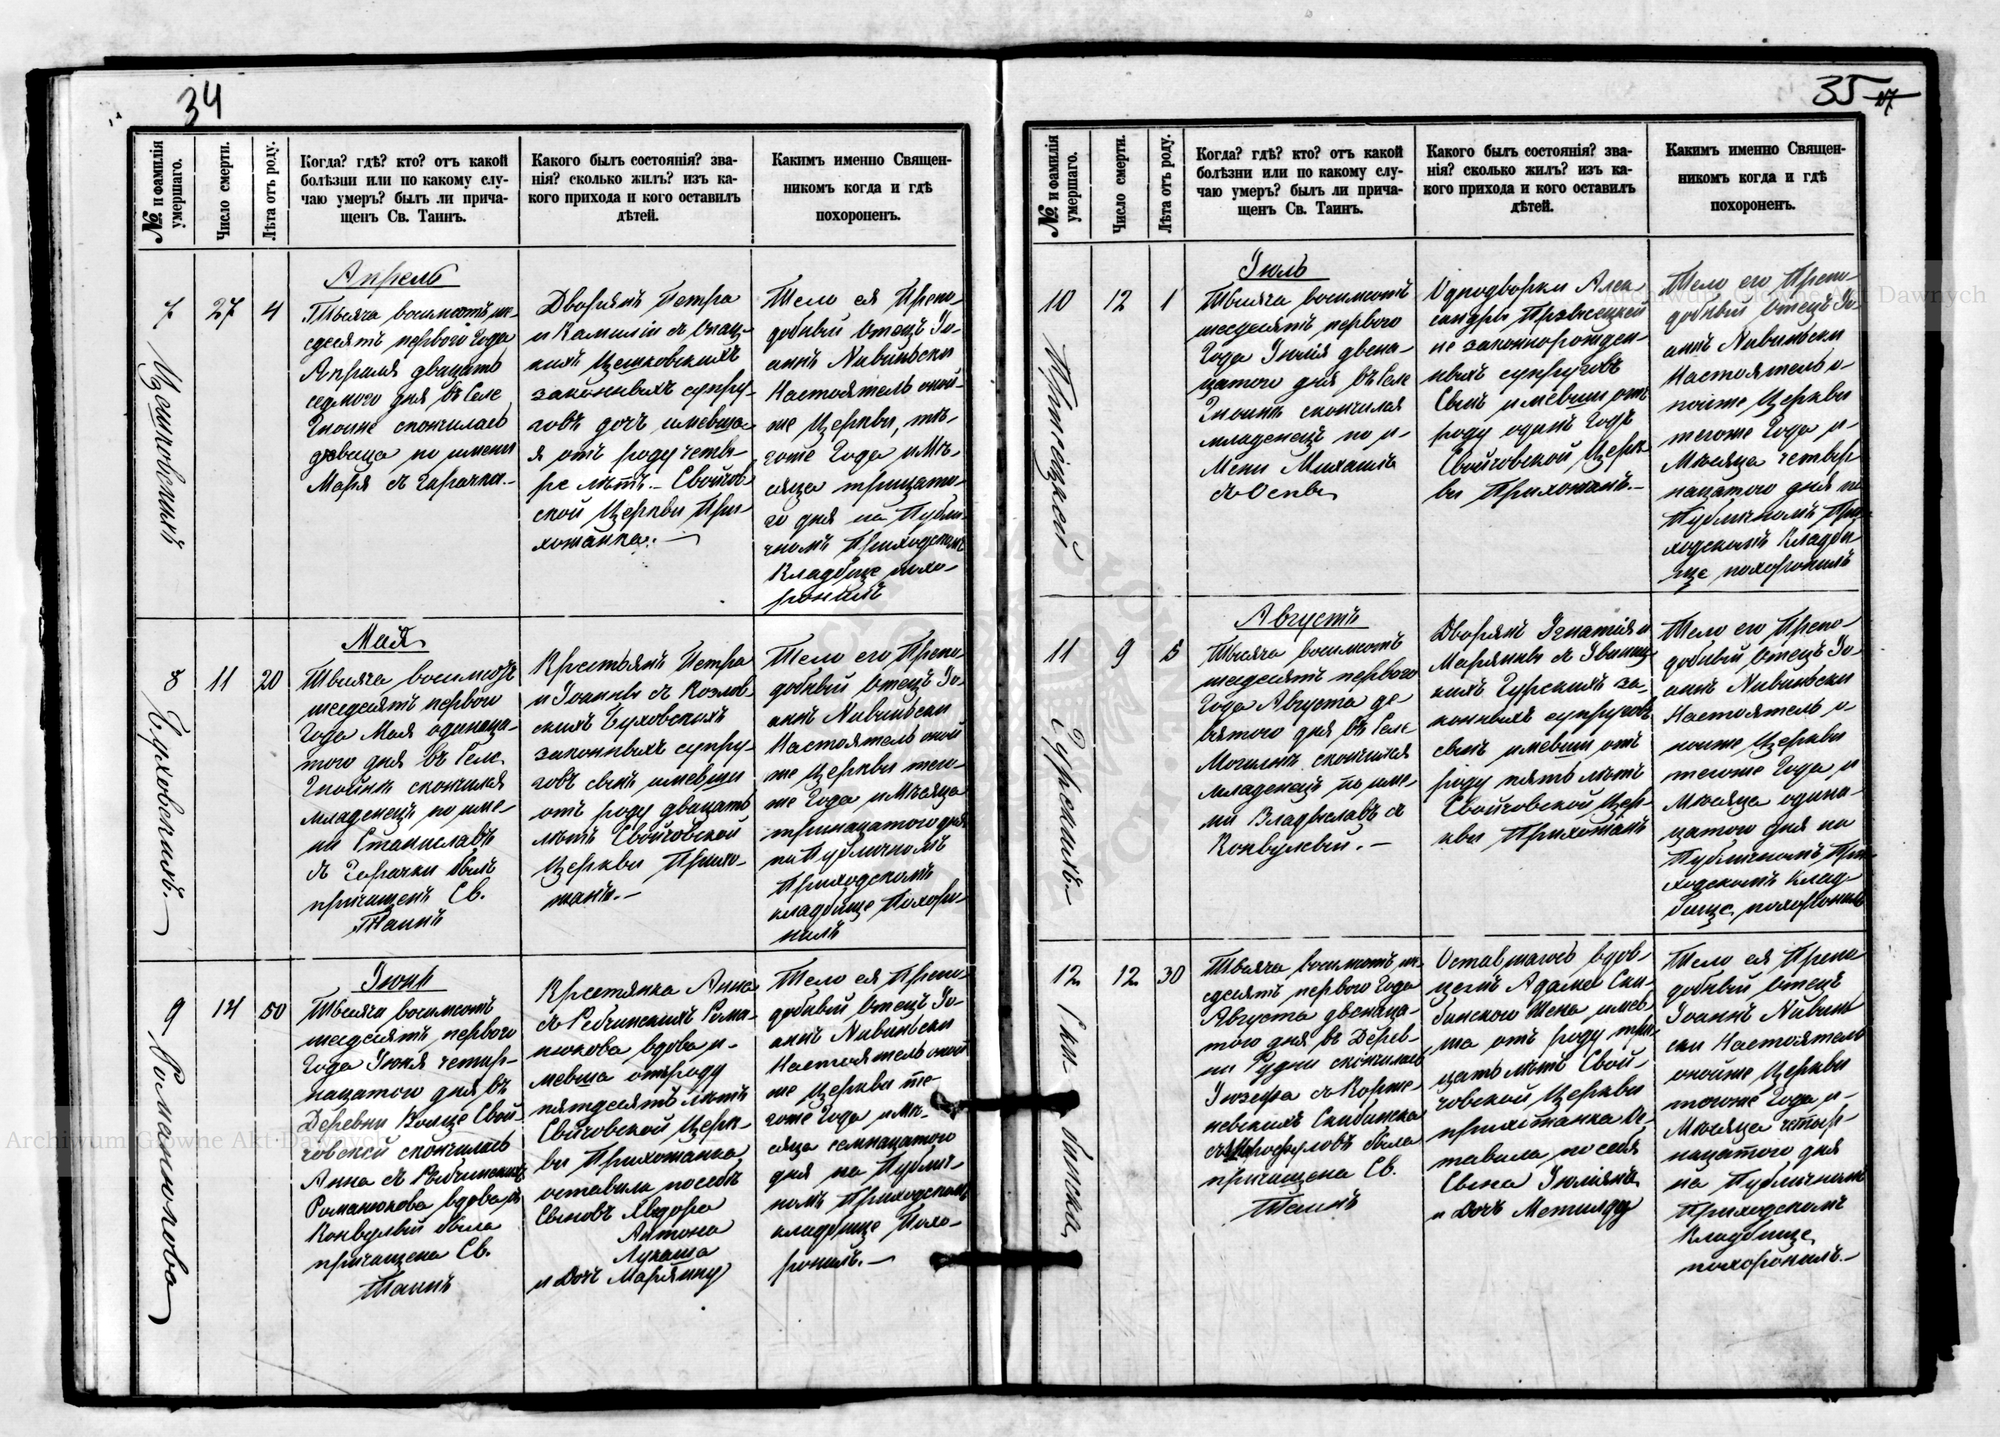 34
№ и фамилія умершаго.
Число смерти.
Лѣта отъ роду.
Когда? гдѣ? кто? отъ какой
болѣзни или по какому слу-
чаю умеръ? былъ ли прича-
щенъ Св. Таинъ.
Какого былъ состоянія? зва-
нія? сколько жилъ? изъ ка-
кого прихода и кого оставилъ
дѣтей.
Какимъ именно Священ-
никомъ когда и гдѣ
похороненъ.
7
27
4
Апрель
Тысяча восимсотъ ше-
сдесятъ первого Года
Апреля двацать
седмого дня въ Селе
скончилась
девица по имени
Маря съ горачки.-
Дворянъ Петра
и Камиліи съ
законныхъ супру-
говъ дочъ имевша-
я отъ роду четы-
ре летъ.- Свойчов
ской Церквы При-
хожанка.-
Тело ея Препо-
добный Отецъ Іо-
анъ
Настоятель оной-
же Церквы, то-
гоже Года и Мѣ-
сяца трицато-
го дня на Публи-
чномъ Приходскомъ
Кладбище похо-
ронилъ
8
Буховскихъ.
11
20
Мая
Тысяча восимсотъ
шесдесятъ первого
Года Мая одинаца-
того дня въ Селе
скончился
младенецъ по име-
ни Станиславъ
съ Горачки былъ
причищенъ Св.
Таинъ
Крестьянъ Петра
и Іоанны съ Козлов
скихъ Буховскихъ
законныхъ супру-
говъ сынъ имевши
отъ роду двацать
летъ Свойчовской
Церквы Прихо-
жанъ.-
Тело его Препо-
добный Отецъ Іо-
анъ
Настоятель оной
же Церквы того-
же Года и Мѣсяца
тринацатого дня
на Публичномъ
Приходскомъ
кладбище Похоро-
нилъ
9
Романюкова
14
50
Іюнь
Тысяча восимсотъ
шесдесятъ первого
Года Іюня четир-
нацатого дня въ
Деревни Свой-
човской скончилась
Анна съ
Романюкова вдова съ
Конвулсій была
причищена Св.
Таинъ
Крестянка Анна
съ Рома-
нюкова вдова и-
мевша отъ роду
пятдесятъ летъ
Свойчовской Церк-
вы Прихожанка,
оставила по себѣ
Сыновъ Хведора
Антона
Лукаша
и Дочъ Марянну
Тело ея Препо-
добный Отецъ Іо-
анъ
Настоятель оной
же Церквы то-
гоже Года и Мѣ-
сяца семнацатого
дня на Публич-
номъ Приходскомъ
кладбище Похо-
ронилъ.-
35
№ и фамилія умершаго.
Число смерти.
Лѣта отъ роду.
Когда? гдѣ? кто? отъ какой
болѣзни или по какому слу-
чаю умеръ? былъ ли прича-
щенъ Св. Таинъ.
Какого былъ состоянія? зва-
нія? сколько жилъ? изъ ка-
кого прихода и кого оставилъ
дѣтей.
Какимъ именно Священ-
никомъ когда и гдѣ
похороненъ.
10
12
1
Іюль
Тысяча восимсотъ
шесдесятъ первого
Года Іюлія двена-
цатого дня въ Селе
скончился
младенецъ по и-
мени Михаилъ
съ Оспы
Однодворки Алек
сандры
не законнорожден-
ныхъ супруговъ
Сынъ имевши отъ
роду одинъ Годъ
Свойчовской Церк-
вы Прихожанъ.-
Тело его Препо-
добный Отецъ Іо-
анъ
Настоятель о-
нойже Церквы
тогоже Года и-
Мѣсяца четыр
нацатого дня на
Публичномъ При-
ходскомъ Кладби-
ще похоронилъ
11
Гурскихъ
9
5
Августъ
Тысяча восимсотъ
шесдесятъ первого
Года Августа де-
вятого дня въ Селе
скончился
младенецъ по име-
ни Владыславъ съ
Конвулсій.-
Дворянъ Игнатія и
Марянны съ
Гурскихъ за-
конныхъ супруговъ
сынъ имевши отъ
роду пять летъ
Свойчовской Цер-
квы Прихожанъ
Тело его Препо-
добный Отецъ Іо-
анъ
Настоятель о-
нойже Церквы
тогоже Года и
Мѣсяца одина-
цатого дня на
Публичномъ При-
ходскомъ Клад-
бище, похоронилъ
12
12
30
Тысяча восимсотъ ше-
сдесятъ первого Года
Августа двенаца-
того дня въ Дерев-
ни Рудни скончилась
Іюзефа съ
была
причищена Св.
Таинъ
Оставшагось вдов-
цемъ Адама
Жена имев-
ша отъ роду три-
цать летъ Свой-
човской Церквы
прихожанка Ос-
тавила по себя
Сына Іюліяна
и Дочъ Метилду
Тело ея Препо
добный Отецъ
Іоанъ
Настоятель
онойже Церквы
тогоже Года и-
Мѣсяца четыр-
нацатого дня
на Публичномъ
Приходскомъ
Кладбище
похоронилъ.-
Archiwum Główne Akt Dawnych
Archiwum Główne Akt Dawnych